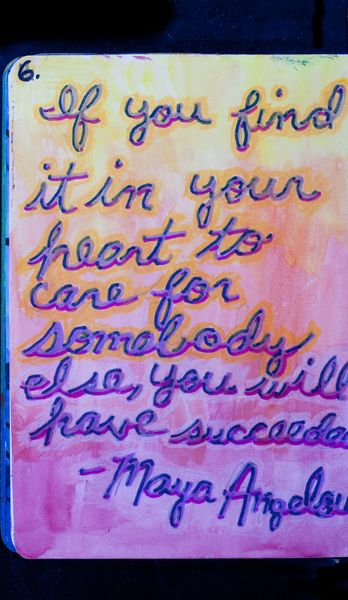 6.
If you find
it in your
heart to
care for
somebody
else, you will
have succeeded
- Maya Angelou